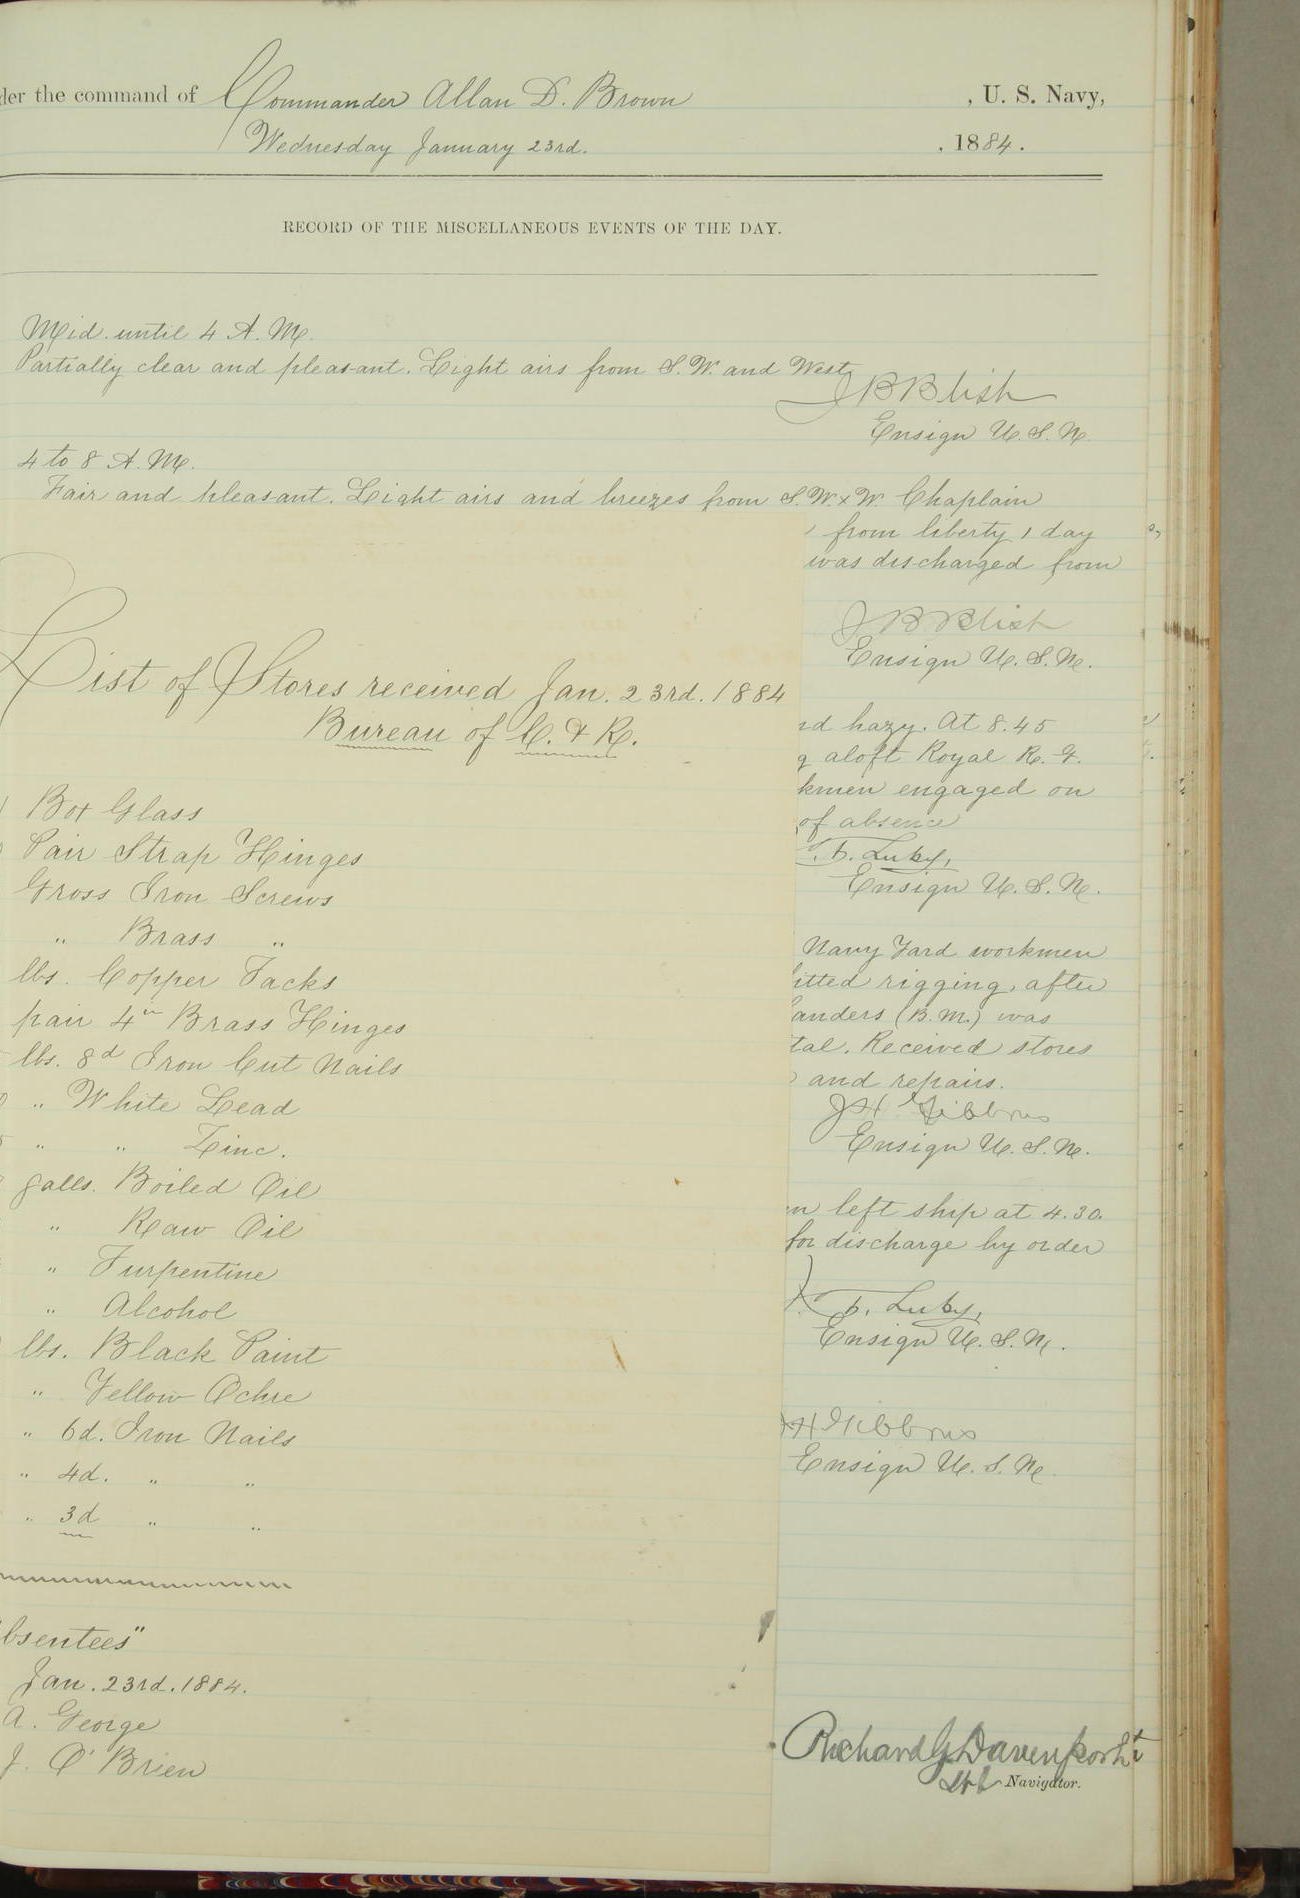 der the command of Commander Allan D. Brown , U. S. Navy,
Wednesday January 23rd. , 1884.
RECORD OF THE MISCELLANEOUS EVENTS OF THE DAY.
Mid. until 4 A. M.
Partially clear and pleasant. Light airs from S.W. and West
J B Blish
Ensign U. S. N.
4 to 8 A. M.
Fair and pleasant. Light airs and breezes from S.W. & W. Chaplain
from liberty 1 day
was discharged from
J B Blish
Ensign U. S. N.
List of Stores received Jan. 23rd. 1884
Bureau of C. & R.
nd hazy. At 8.45
g aloft Royal R. G.
kmen engaged on
of absence
Luby,
Ensign U. S. N.
Box Glass
Pair Strap Hinges
Gross Iron Screws
" Brass "
lbs. Copper Tacks
pair 4in Brass Hinges
lbs. 8d Iron Cut Nails
" White Lead
" " Zinc.
galls. Boiled Oil
" Raw Oil
" Turpentine
" Alcohol
lbs. Black Paint
" Yellow Ochre
" 6d. Iron Nails
" 4d. " "
" 3d " "
Navy Yard workmen
itted rigging, after
anders (B. M.) was
tal. Received stores
and repairs.
J H Gibbons
Ensign U. S. N.
en left ship at 4.30.
for discharge by order
Luby,
Ensign U. S. N.
J H Gibbons
Ensign U. S. N.
bsentees"
Jan. 23rd. 1884.
A. George
J. O'Brien
Richard G Davenport
Navigator.